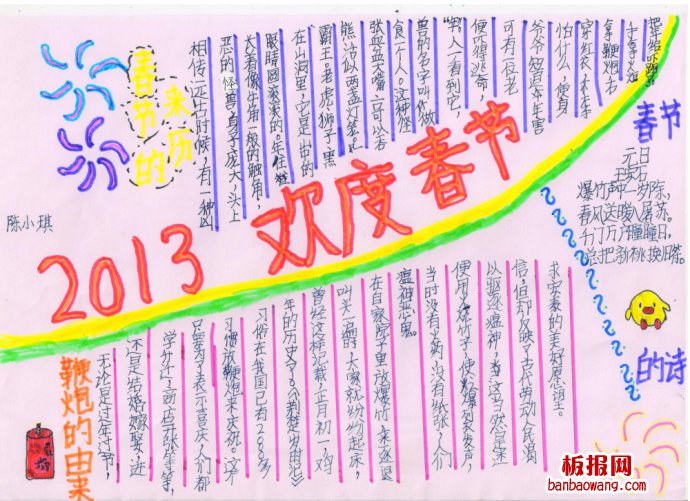 2013 欢度春节
春节的
来历
相传远古时候,有一种凶
恶的怪兽身子庞大,头上
长着像牛角一般的触角,
眼睛圆滚滚的。年住
在山洞里,它是山中的
霸王。老虎、狮子、黑
张血盆大嘴一口可以吞
食一个人。这种怪
兽的名字叫
男人一看到它,
便得逃命,
可有一位老
爷爷知道年害
怕什么,便身
穿红衣,
拿鞭炮,右
手拿火
把年给吓跑
陈小琪
春节
的诗
元日
王安石
爆竹声中一岁除,
春风送暖入屠苏。
千门万户曈曈日,
总把新桃换旧符。
鞭炮的由来
无论是过年过节,
还是结婚嫁娶,进
学升迁,商店开张等等,
只要为了表示喜庆,人们都
习惯放鞭炮来庆祝。这个
习俗在我国已有2000多
年的历史了。《荆楚岁时记》
曾经这样记载:正月初一,鸡
叫头一遍时,大家就纷纷起床,
在自家院子里放爆竹,来逐退
瘟神恶鬼。
当时没有火药,没有纸张,人们
便使用了烧竹子,使爆裂发声,
以驱逐瘟神,这当然是迷
信,但却反映了古代劳动人民渴
求安泰的美好愿望
板报网
banbaowang.com